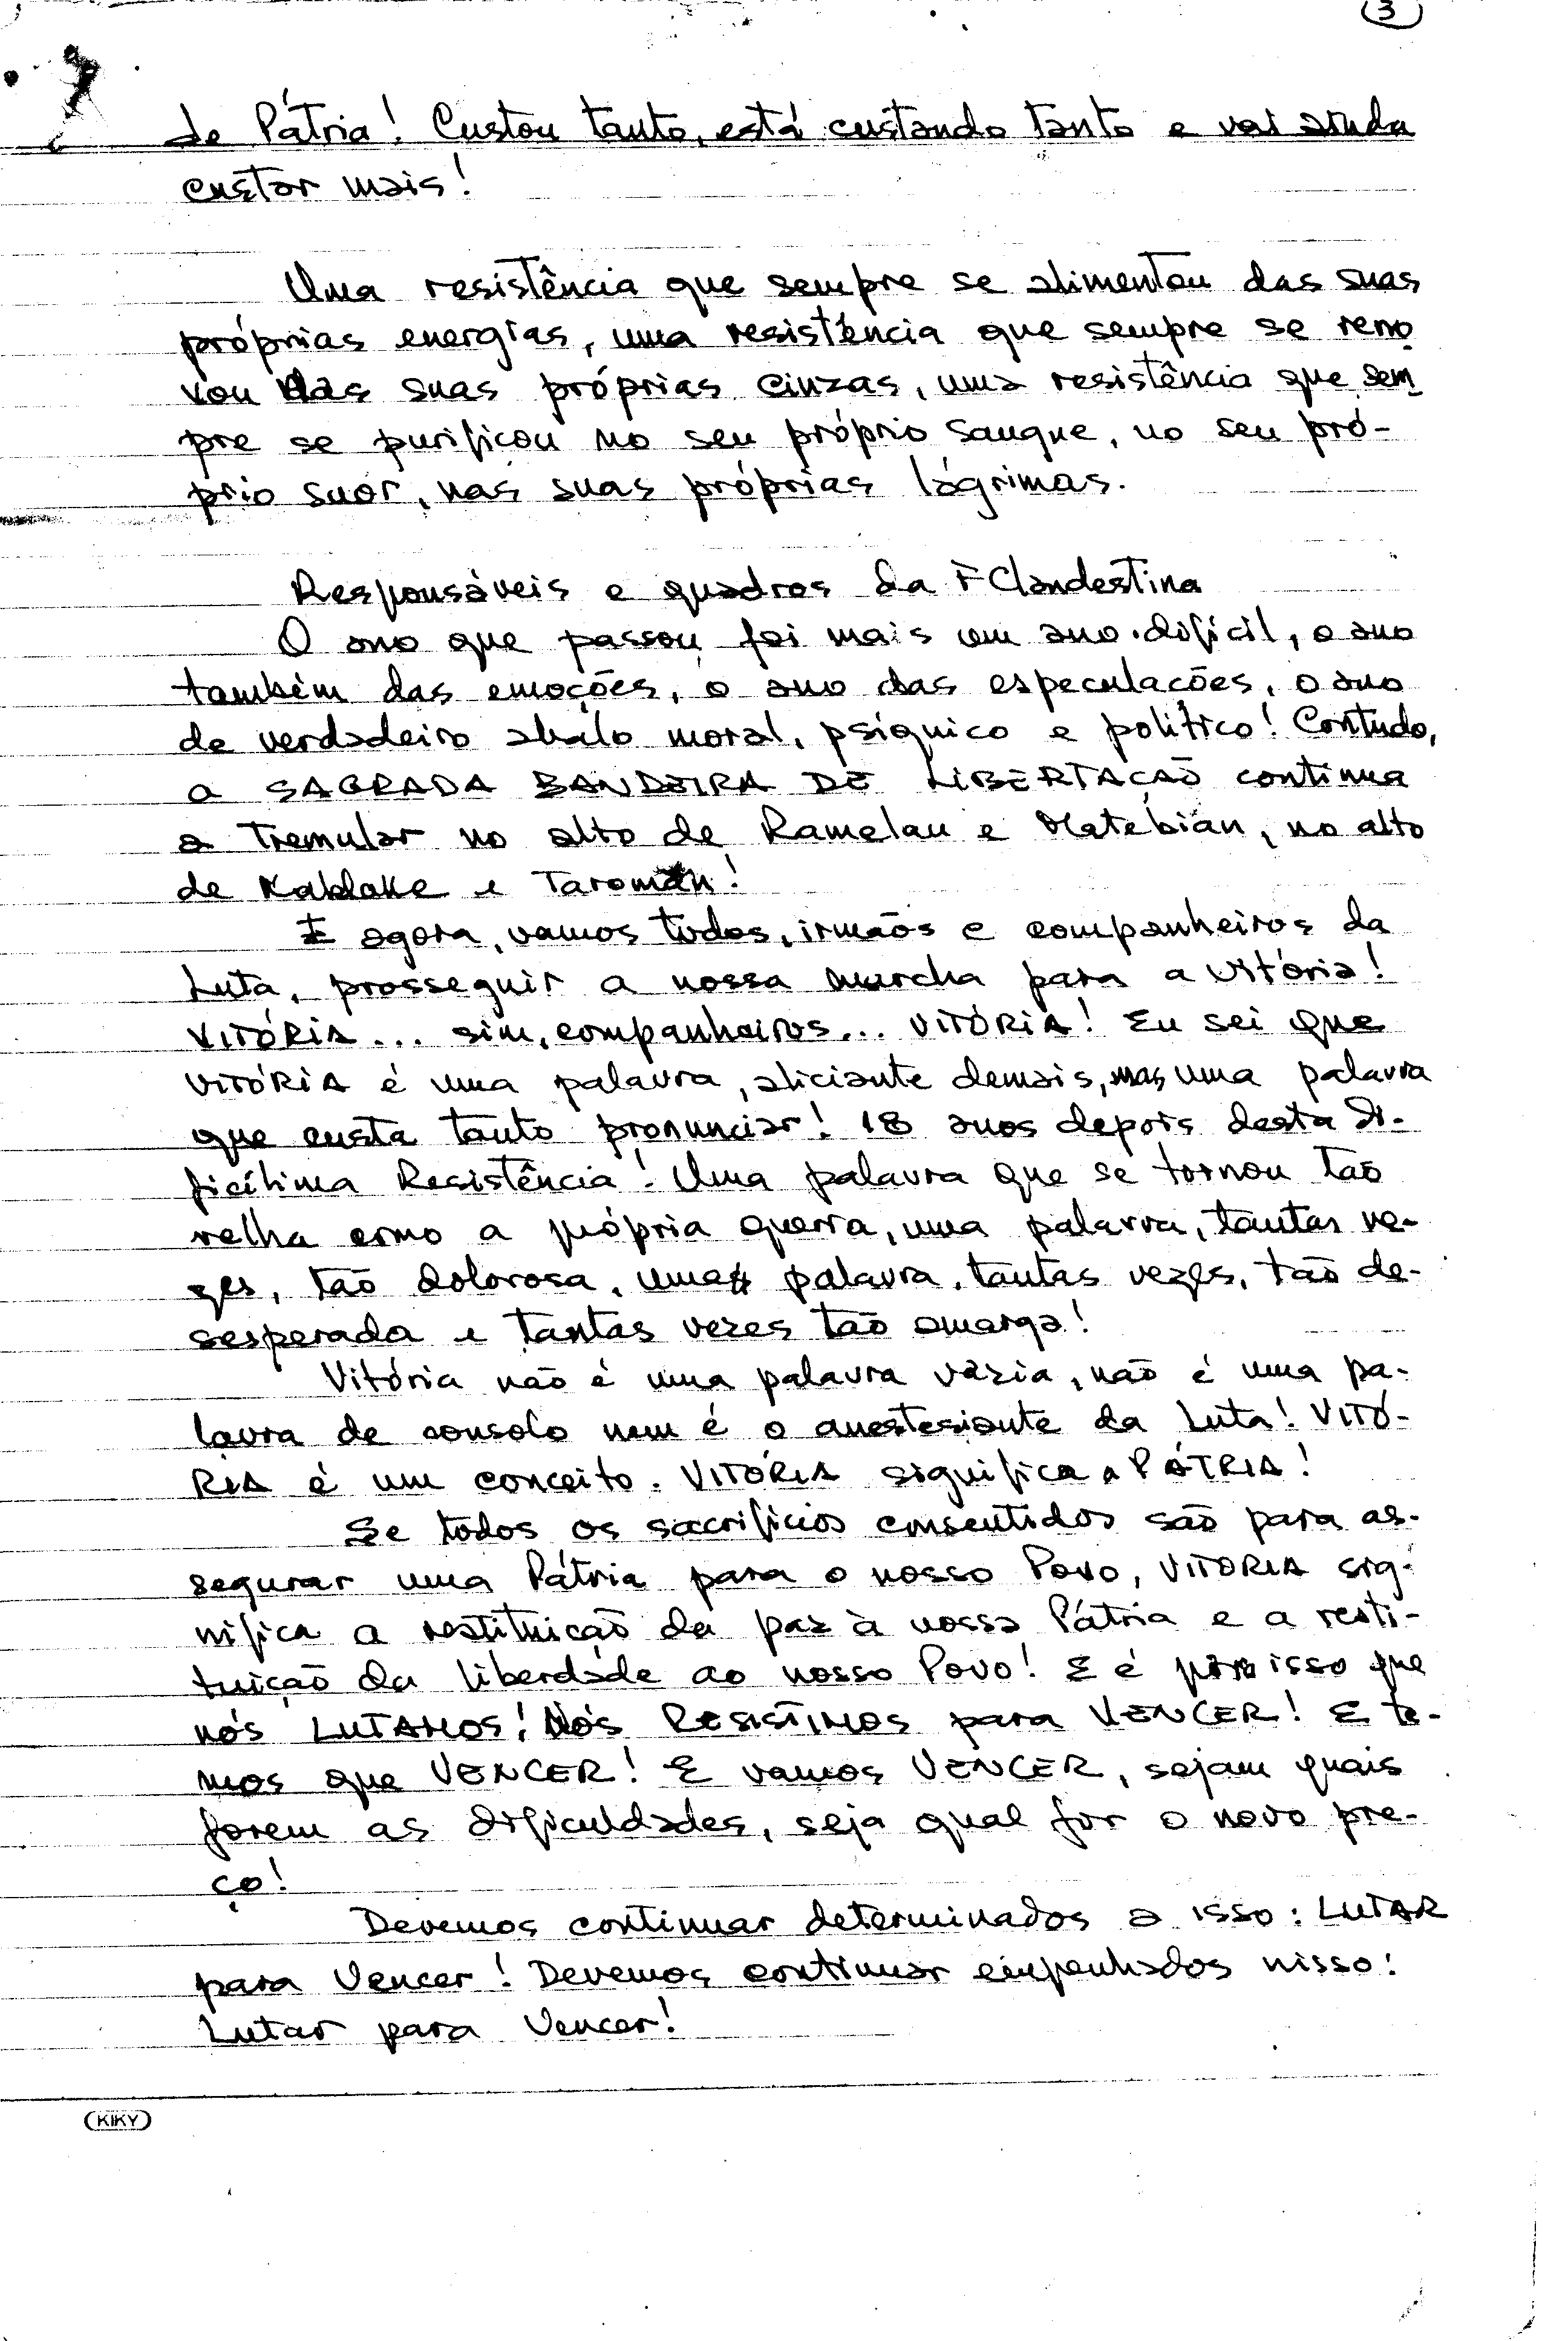 3
de Pátria! Custou tanto, está custando tanto e vai ainda
custar mais!
Uma resistência que sempre se alimentou das suas
próprias energias, uma resistência que sempre se reno
vou das suas próprias cinzas, uma resistência que sem
pre se purificou no seu próprio sangue, no seu pró-
prio suor, nas suas próprias lágrimas.
Responsáveis e quadros da F Clandestina
O ano que passou foi mais um ano difícil, o ano
também das emoções, o ano das especulações, o ano
de verdadeiro abalo moral, psíquico e político! Contudo,
a SAGRADA BANDEIRA DE LIBERTAÇÃO continua
a tremular no alto de Ramelau e Matebian, no alto
de Kablake e Taroman!
E agora, vamos todos, irmãos e companheiros da
Luta, prosseguir a nossa marcha para a vitória!
VITÓRIA... sim, companheiros... VITÓRIA! Eu sei que
VITÓRIA é uma palavra, aliciante demais, mas uma palavra
que custa tanto pronunciar! 18 anos depois desta di-
ficílima Resistência! Uma palavra que se tornou tão
velha como a própria guerra, uma palavra, tantas ve-
zes, tão dolorosa, uma palavra, tantas vezes, tão de-
sesperada e tantas vezes tão amarga!
Vitória não é uma palavra vazia, não é uma pa-
lavra de consolo nem é o anestesiante da Luta! VITÓ-
RIA é um conceito. VITÓRIA significa a PÁTRIA!
Se todos os sacrifícios consentidos são para as-
segurar uma Pátria para o nosso Povo, VITORIA sig-
nifica a restituição da paz à nossa Pátria e a resti-
tuição da liberdade ao nosso Povo! E é por isso que
nós LUTAMOS! Nós RESISTIMOS para VENCER! E te-
mos que VENCER! E vamos VENCER, sejam quais
forem as dificuldades, seja qual for o novo pre-
ço!
Devemos continuar determinados a isso: LUTAR
para Vencer! Devemos continuar empenhados nisso:
Lutar para Vencer!
KIKY